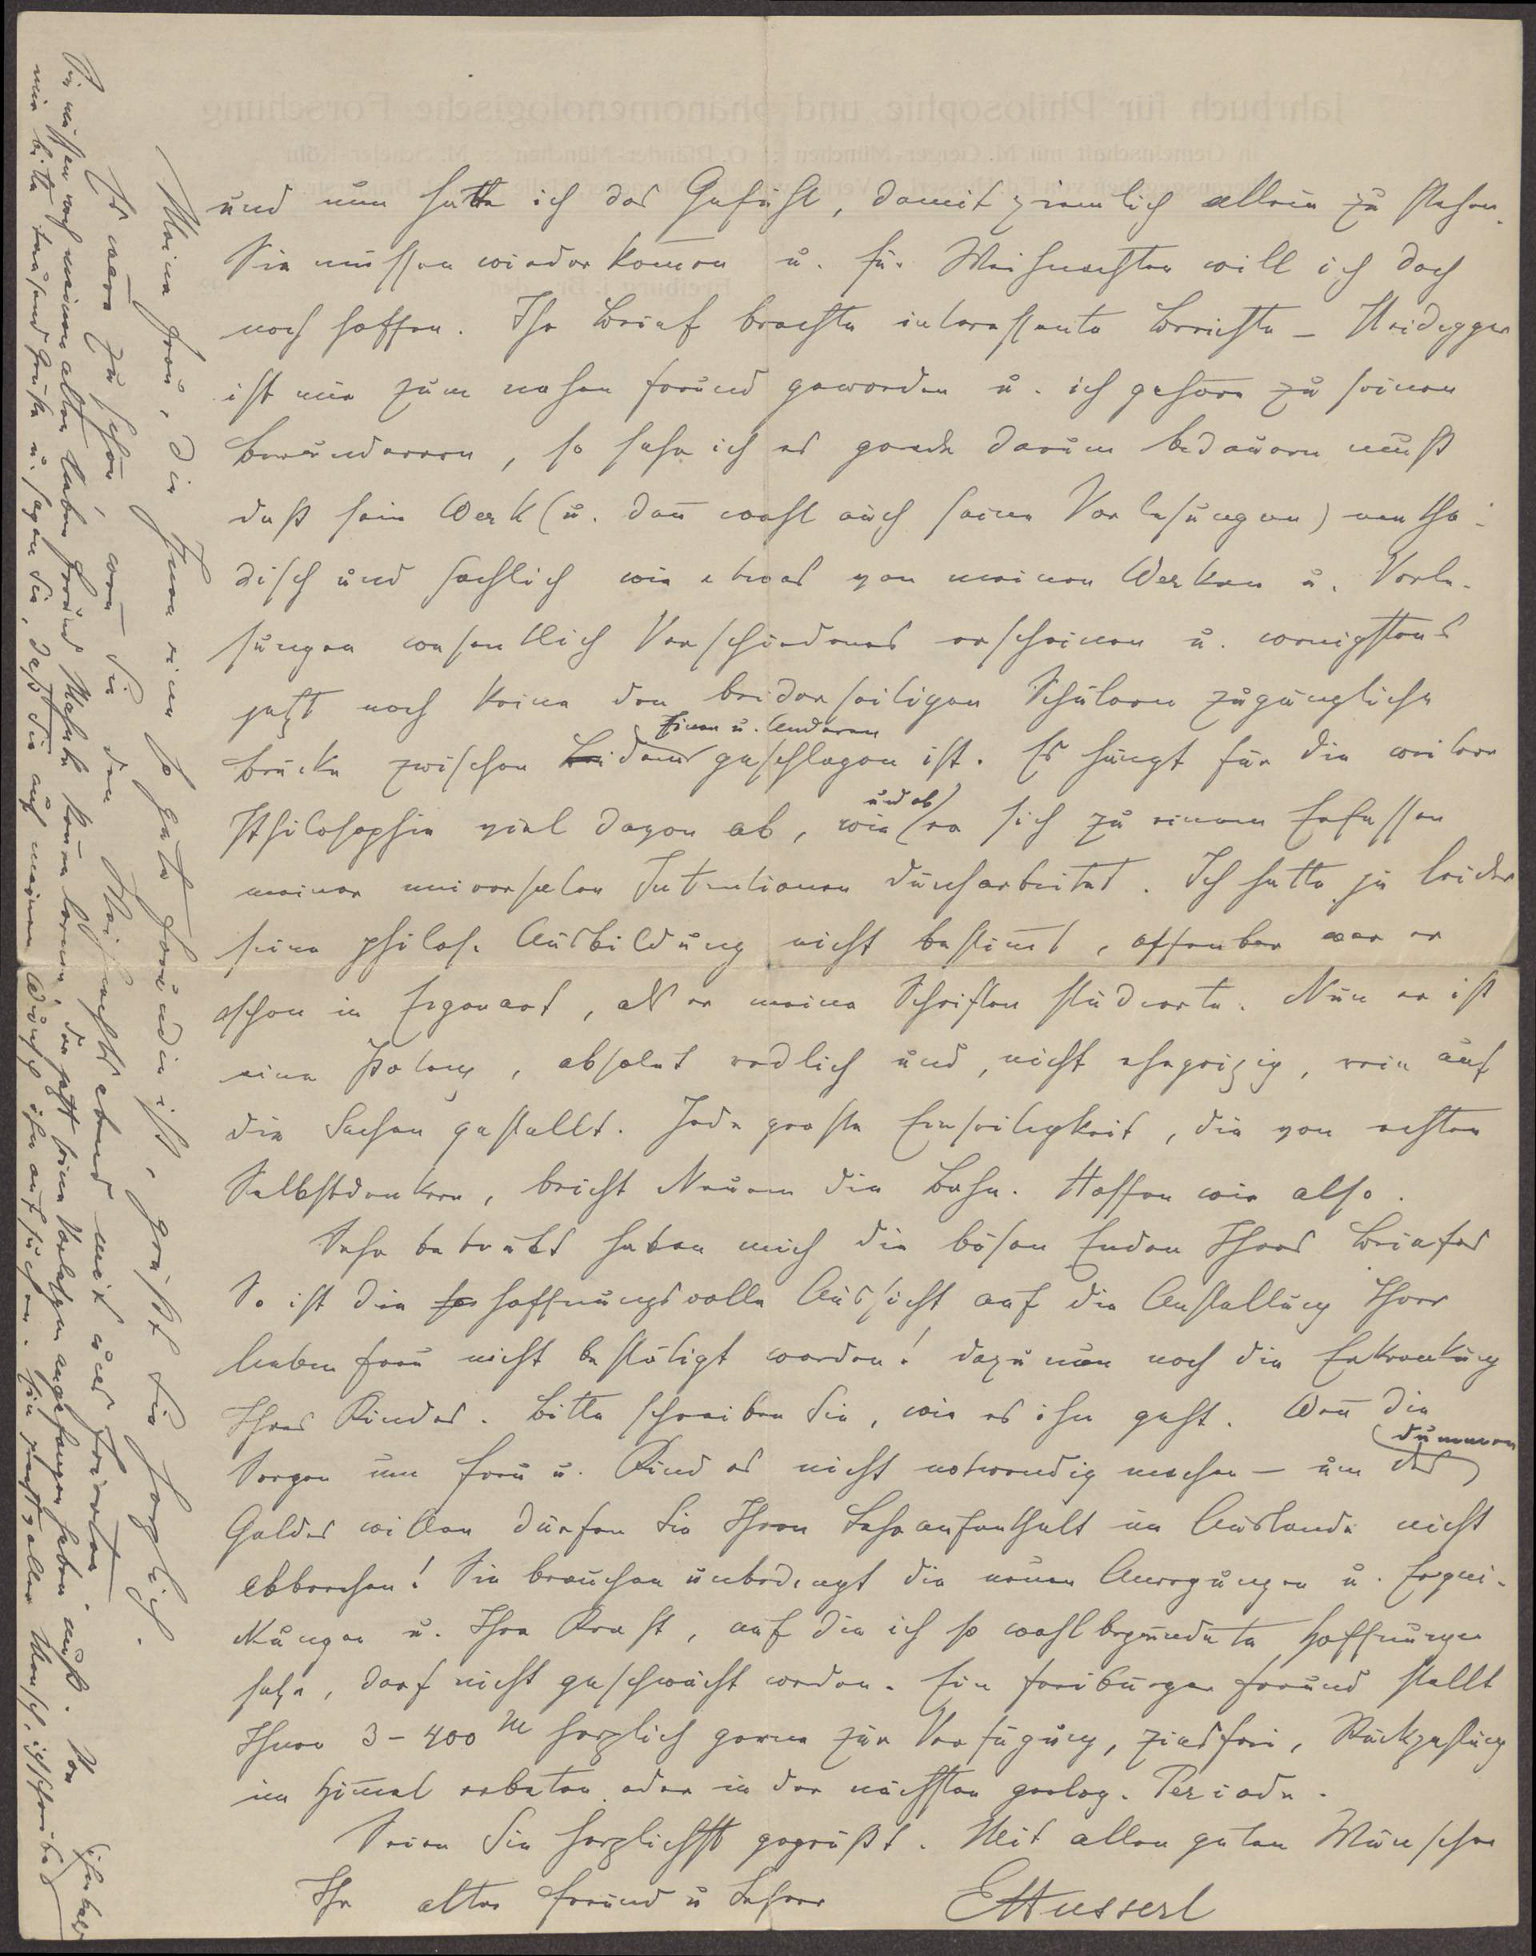 und nun hatte ich das Gefühl, damit ziemlich allein zu stehen.
Sie müssen wiederkom̄en u. für Weihnachten will ich doch
noch hoffen. Ihr Brief brachte interessante Berichte – Heidegger
ist mir zum nahen Freund geworden u. ich gehöre zu seinen
Bewunderern, so sehr ich es gerade darum bedauern muß
daß sein Werk (u. dan̄ wohl auch seine Vorlesungen) metho-
disch und sachlich wie etwas von meinen Werken u. Vorle-
sungen wesentlich Verschiedenes erscheinen u. wenigstens
jetzt noch keine den beiderseitigen Schülern zugängliche
Brücke zwischen Einen u. Anderen geschlagen ist. Es hängt für die weitere
Philosophie viel davon ab, wie und ob er sich zu einem Erfassen
meiner universalen Intentionen durcharbeitet. Ich hatte ja leider
seine philos. Ausbildung nicht bestim̄t, offenbar war er
schon in Eigenart, als er meine Schriften studierte. Nun er ist
eine Potenz, absolut redlich und, nicht ehrgeizig, rein auf
die Sachen gestellt. Jede große Einseitigkeit, die von echten
Selbstdenkern, bricht Neuem die Bahn. Hoffen wir also.
Sehr betrübt haben mich die bösen Enden Ihres Briefes
So ist die hoffnungsvolle Aussicht auf die Anstellung Ihrer
lieben Frau nicht bestätigt worden! dazu nun noch die Erkrankung
Ihres Kindes. Bitte schreiben Sie, wie es ihm geht. Wen̄ die
Sorgen um Frau u. Kind es nicht notwendig machen – um des dummen
Geldes willen dürfen Sie Ihren Lehraufenthalt im Auslande nicht
abbrechen! Sie brauchen unbedingt die neuen Anregungen u. Erqui-
ckungen u. Ihre Kraft, auf die ich so wohlbegründete Hoffnungen
setze, darf nicht geschwächt werden. Ein Freiburger Freund stellt
Ihnen 3–400 M herzlich gerne zur Verfügung, zinsfrei, Rückzahlung
im Him̄el erbeten oder in der nächsten geolog. Periode.
Seien Sie herzlichst gegrüßt. Mit allen guten Wünschen
Ihr alter Freund u Lehrer
EHusserl
Meine Frau, die Ihnen eine so gute Freundin ist, grüßt Sie herzlich.
Es wäre zu schön, wen̄ Sie den Weihnachtsabend mit uns feierten.
Sie müssen noch meinen alten lieben Freund Mahnke ken̄en lernen, der jetzt seine Vorlesgen angefangen haben muß.
mir bitte tausend Grüße u. sagen Sie, daß Sie auf meinen Wunsch ihn aufsuchen. Ein prachtvoller Mensch,